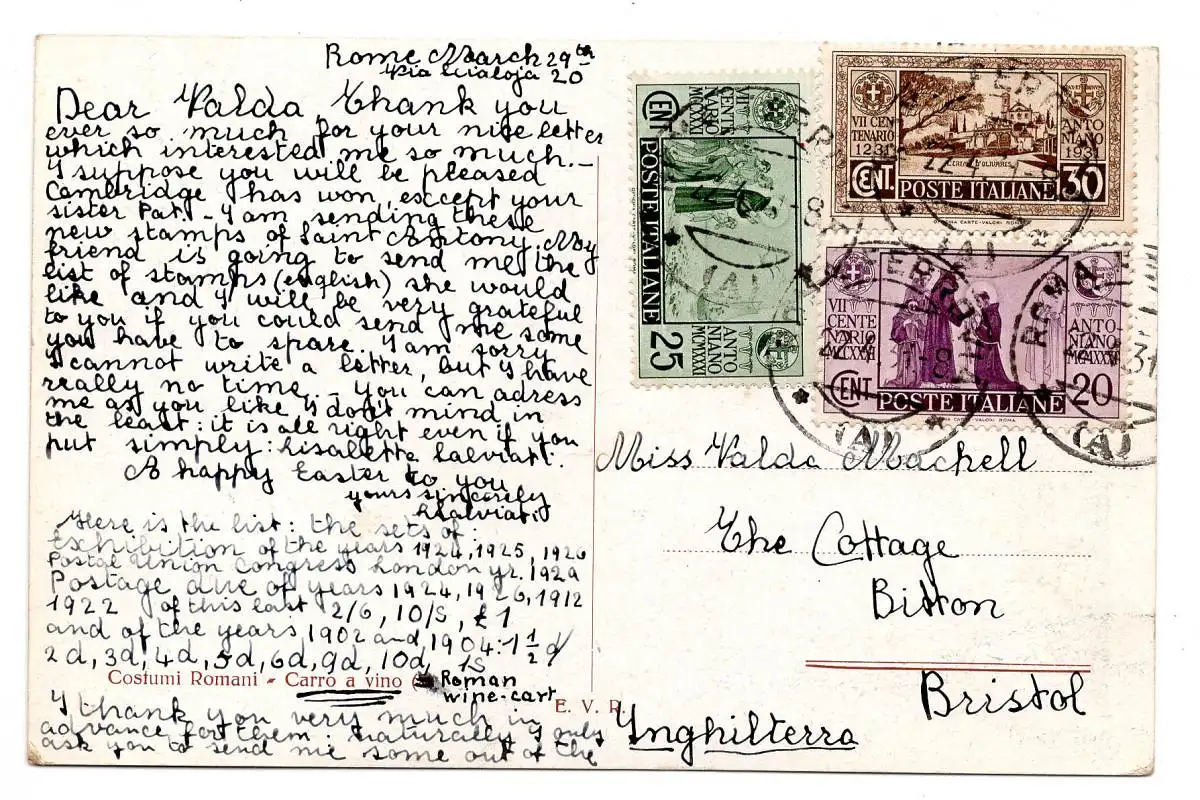 Rome March 29th
Via Scialoja 20
Dear Valda, Thank you
ever so much for your nice letter
which interested me so much.-
I suppose you will be pleased
Cambridge has won, except your
sister Pat.- I am sending these
new stamps of Saint Antony. My
friend is going to send me the
list of stamps (english) she would
like and I will be very grateful
to you if you could send me some
you have to spare. I am sorry
I cannot write a letter, but I have
really no time. - You can adress
me as you like I don't mind in
the least: it is all right even if you
put simply: Lisalletta Salviati.
A happy Easter to you
yours sincerely
LSalviati
Here is the list: the sets of:
Exhibition of the years 1924, 1925, 1926
Postal Union Congress London yr. 1929
Postage due of years 1924, 1926, 1912
1922 of this last 2/6, 10/S, £1
and of the years 1902 and 1904: 1 1/2 d
2d, 3d, 4d, 5d, 6d, 9d, 10d, 1s
Costumi Romani - Carro a vino (Roman
wine-cart
E. V. R.
I thank you very much in
advance for them: naturally I only
ask you to send me some out of the
VII CENTENARIO MCXXXI
ANTONIANO MCMXXXI
POSTE ITALIANE
CENT 25
VII CENTENARIO 1231
ANTONIANO 1931
CENT. POSTE ITALIANE 30
VII CENTENARIO MCXXXI
ANTONIANO MCMXXXI
CENT POSTE ITALIANE 20
ROMA
(A)
Miss Valda Machell
The Cottage
Bitton
Bristol
Inghilterra